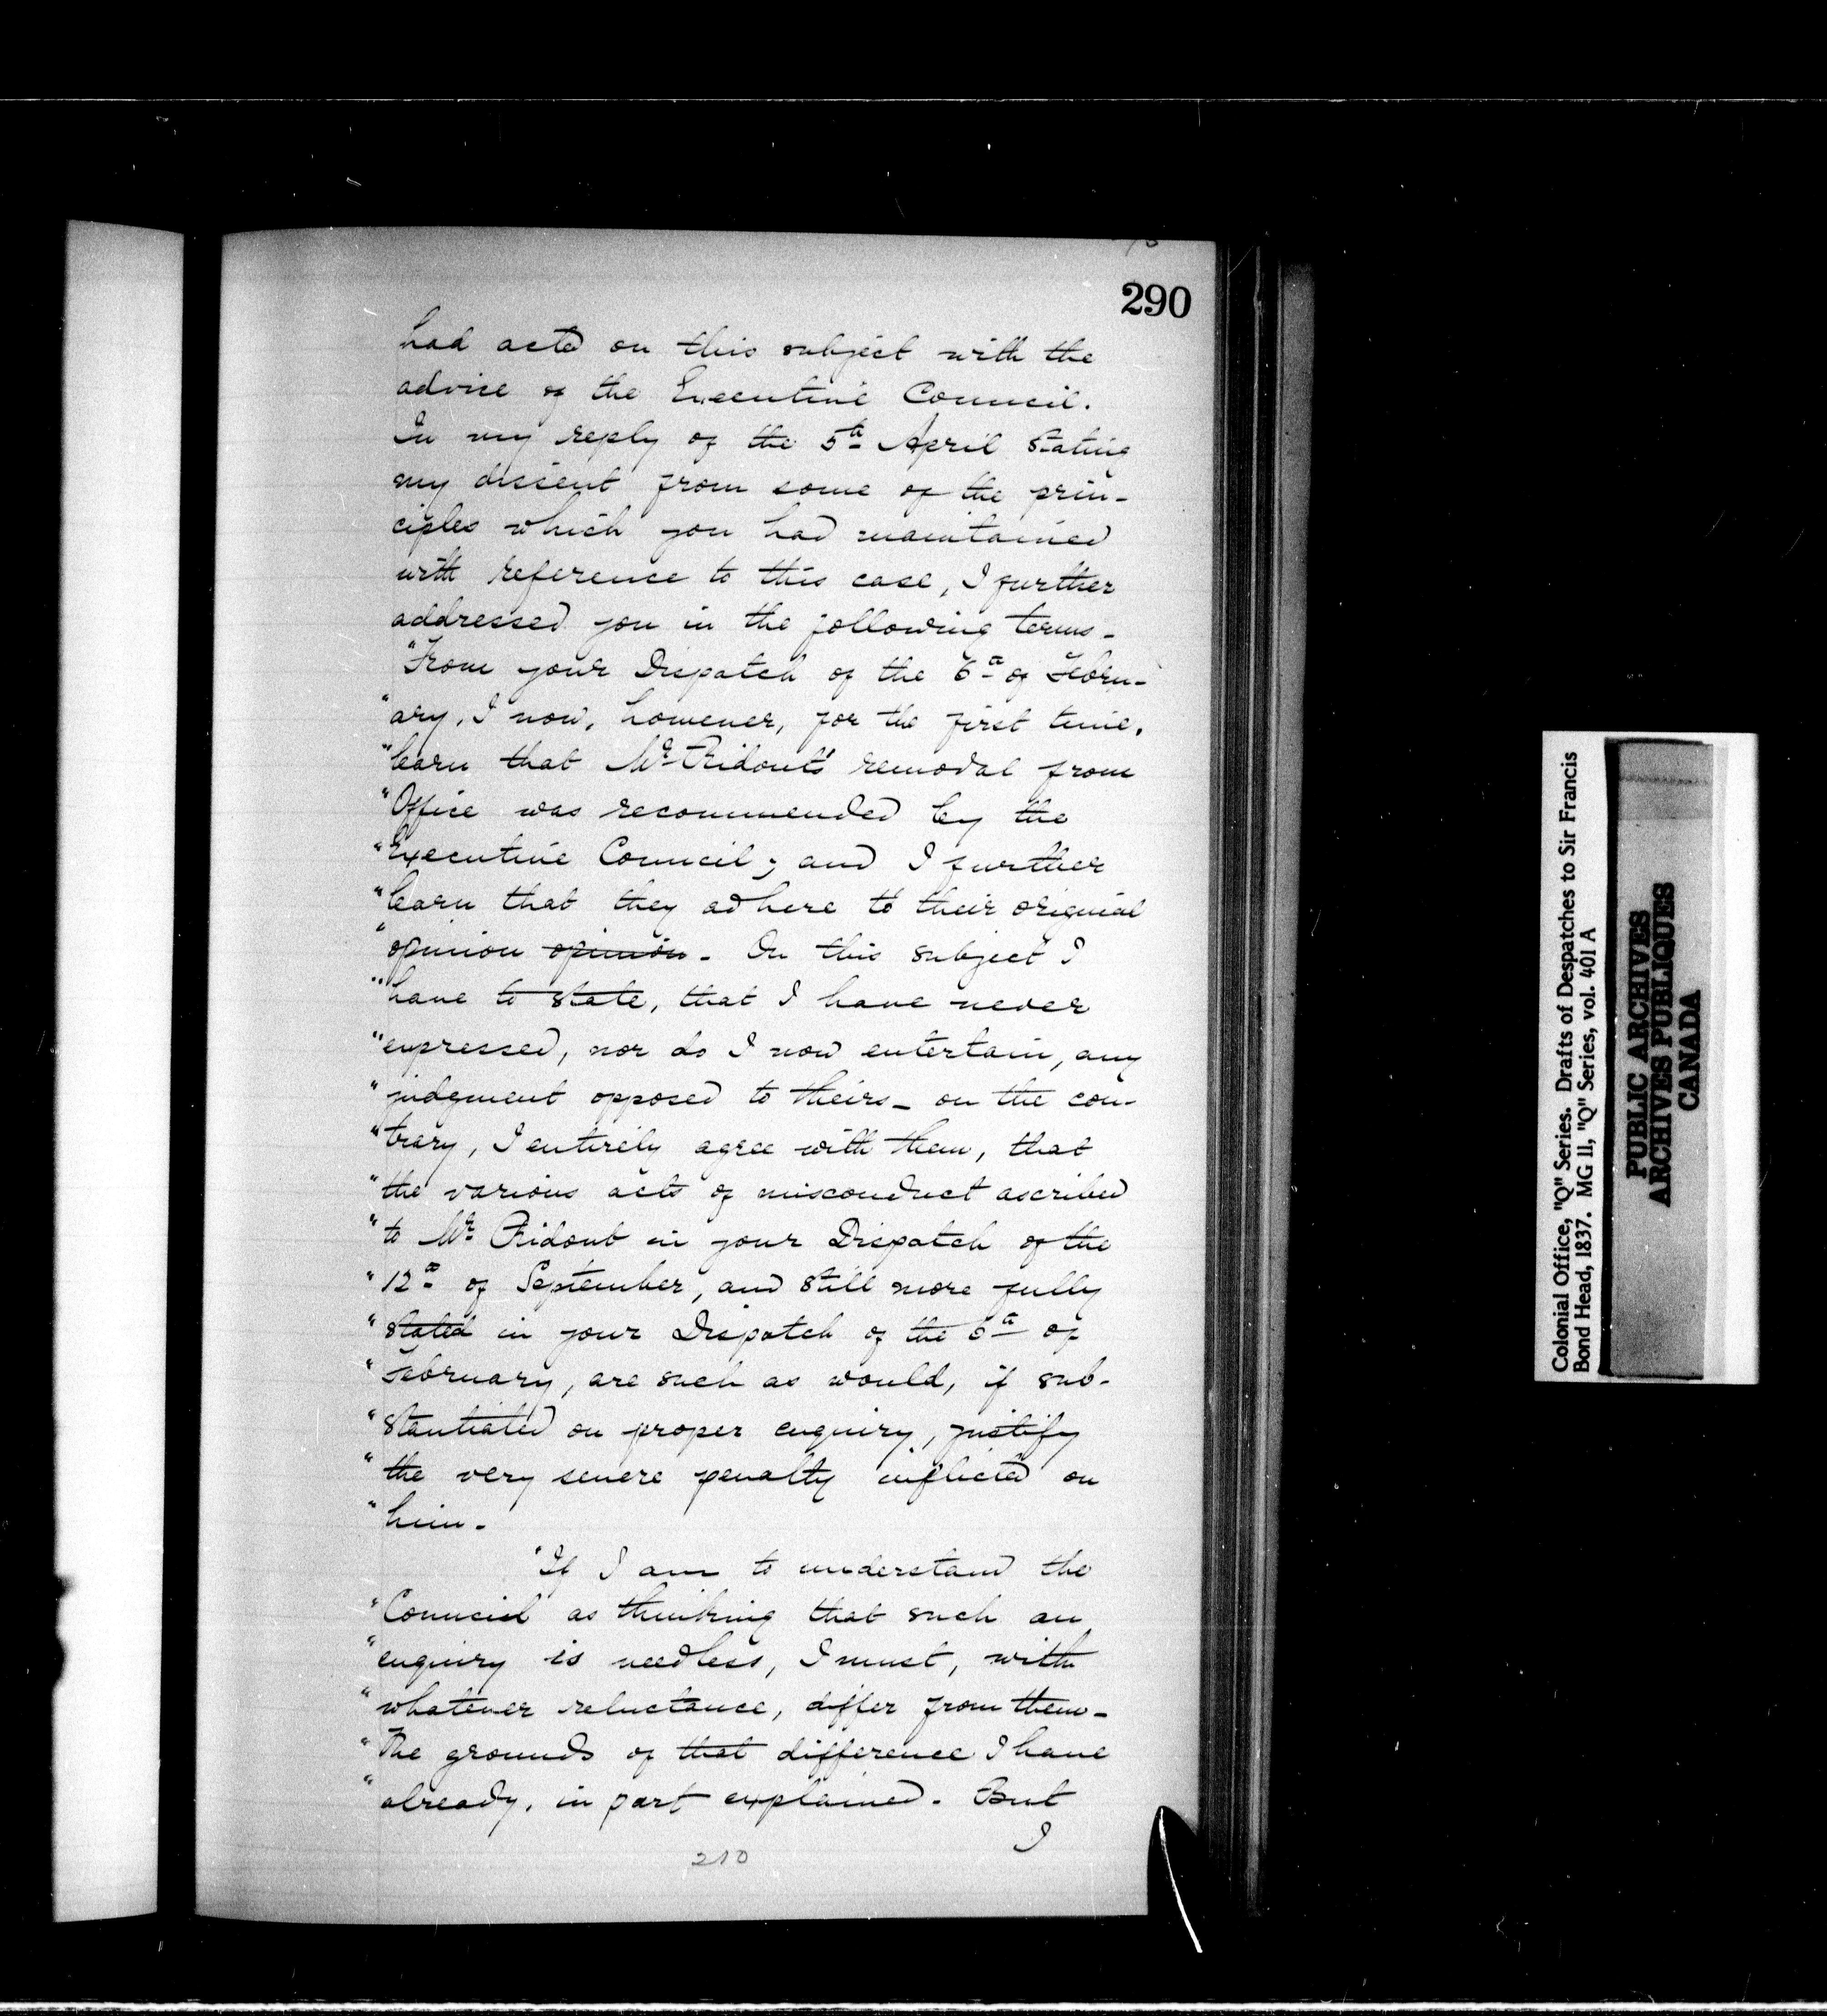 290
had acted on this subject with the
advice of the Executive Council.
In my reply of the 5th April stating
my dissent from some of the prin-
ciples which you had maintained
with reference to this case, I further
addressed you in the following terms -
"From your Dispatch of the 6th of Febru-
"ary, I now, however, for the first time,
"learn that Mr Ridout's removal from
"Office was recommended by the
"Executive Council; and I further
"learn that they adhere to their original
"opinion opinion - On this subject I
"have to state, that I have never
"expressed, nor do I now entertain, any
"judgment opposed to theirs - on the con-
"trary, I entirely agree with them, that
"the various acts of misconduct ascribed
"to Mr Ridout in your Dispatch of the
"12th of September, and still more fully
"stated in your Dispatch of the 6th of
"February, are such as would, if sub-
"stantiated on proper enquiry, justify
"the very severe penalty inflicted on
"him -
"If I am to understand the
"Council as thinking that such an
"enquiry is needless, I must, with
"whatever reluctance, differ from them -
"The grounds of that difference I have
"already, in part explained. But
I
210
Colonial Office, "Q" Series. Drafts of Despatches to Sir Francis
Bond Head, 1837. MG 11, "Q" Series, vol. 401 A
PUBLIC ARCHIVES
ARCHIVES PUBLIQUES
CANADA